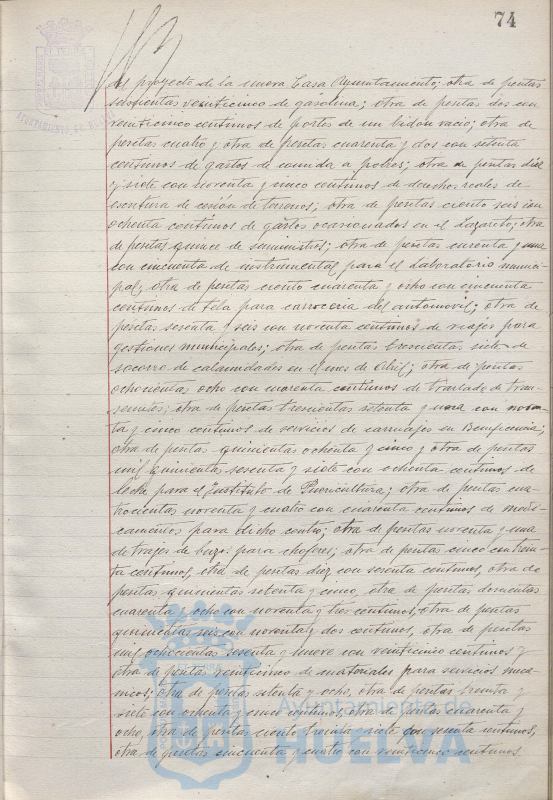 74
del proyecto de la nueva Casa Ayuntamiento; otra de pesetas
veinticinco de gasolina; otra de pesetas dos con
veinticinco centimos de portes de un bidon vacio; otra de
pesetas cuatro y otra de pesetas cuarenta y dos con setenta
centimos de gastos de comida a pobres; otra de pesetas diez
y siete con noventa y cinco centimos de derechos reales de
escritura de cesión de terrenos; otra de pesetas ciento seis con
ochenta centimos de gastos ocasionados en el Lazareto; otra
de pesetas quince de suministros; otra de pesetas cuarenta y una
con cincuenta de instrumental para el Laboratorio munici-
pal; otra de pesetas ciento cuarenta y ocho con cincuenta
centimos de tela para carroceria del automovil; otra de
pesetas sesenta y seis con noventa centimos de viajes para
gestiones municipales; otra de pesetas trescientas siete de
socorro de calamidades en el mes de Abril; otra de pesetas
ochocientas ocho con cuarenta centimos de traslado de tran-
seuntes; otra de pesetas trescientas setenta y una con noven-
ta y cinco centimos de servicios de carruajes en Beneficencia;
otra de pesetas quinientas ochenta y cinco y otra de pesetas
mil quinientas sesenta y siete con ochenta centimos de
leche para el Instituto de Puericultura; otra de pesetas cua-
trocientas noventa y cuatro con cuarenta centimos de medi-
camentos para dicho centro; otra de pesetas noventa y una
de trajes de buzo para choferes; otra de pesetas cinco con trein-
ta centimos, otra de pesetas diez con sesenta centimos, otra de
pesetas quinientas setenta y cinco, otra de pesetas doscientas
cuarenta y ocho con noventa y tres centimos, otra de pesetas
quinientas seis con noventa y dos centimos, otra de pesetas
mil ochocientas sesenta y nueve con veinticinco centimos y
otra de pesetas veinticinco de materiales para servicios meca-
nicos; otra de pesetas setenta y ocho, otra de pesetas treinta y
siete con ochenta y cinco centimos, otra de pesetas cuarenta y
ocho, otra de pesetas ciento treinta y siete con sesenta centimos,
otra de pesetas cincuenta y cuatro con veinticinco centimos
Ayuntamiento de
HUELVA